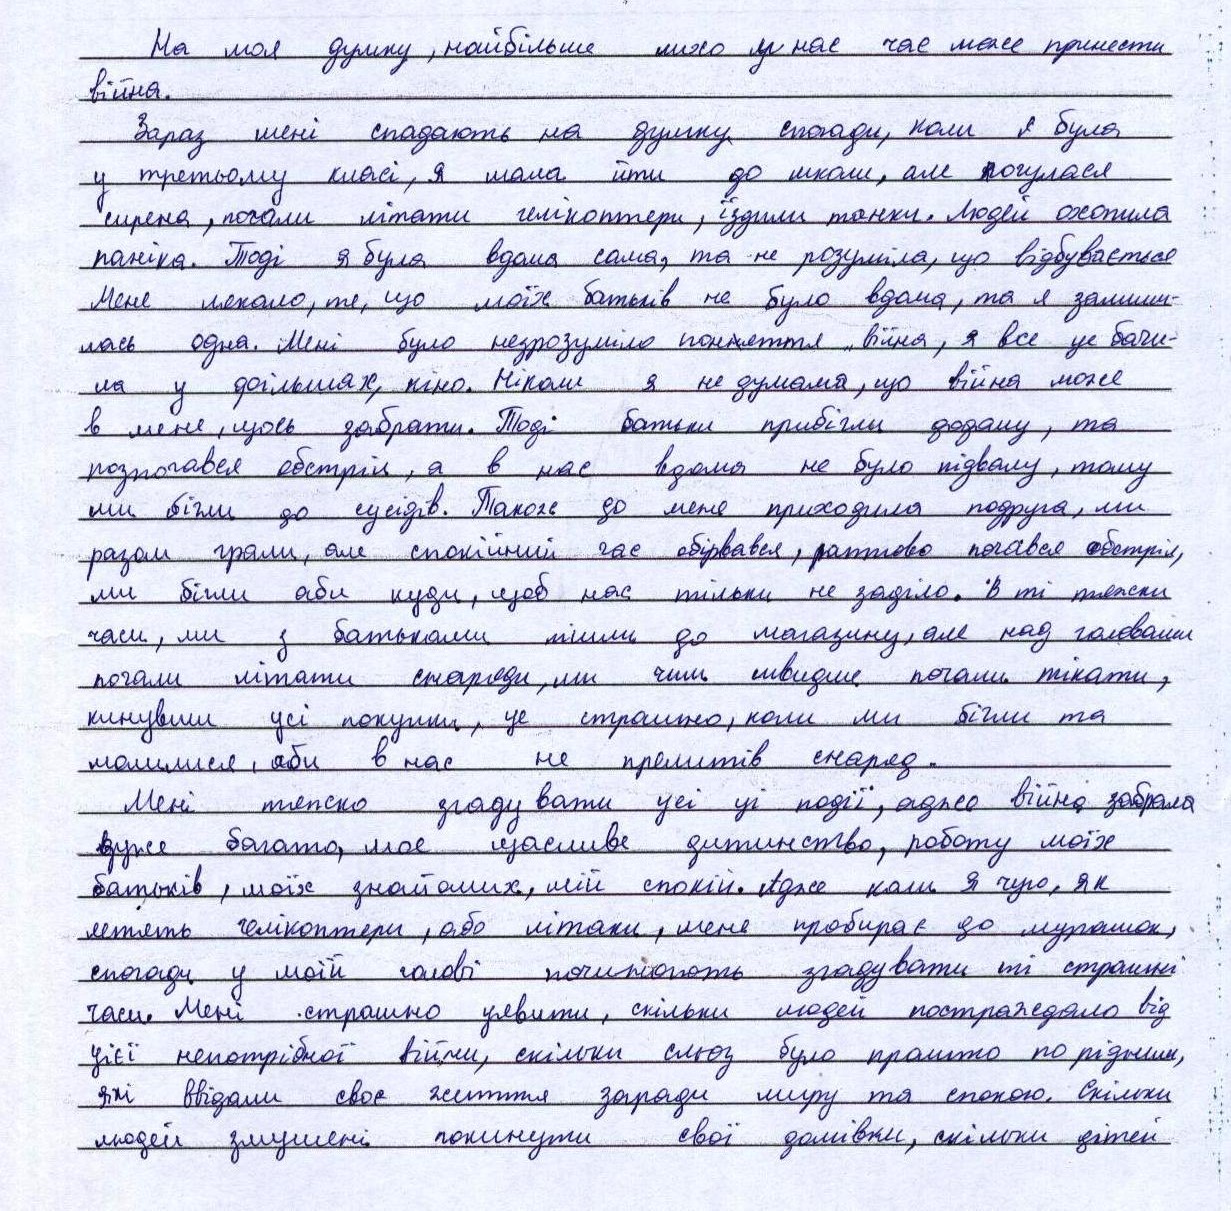 На моя думку, найбільше лихо у нас час може принести
війна.
Зараз мені спадають на думку спогади, коли я була
у третьому класі, я мала йти до школи, але почулася
сирена, почали літати гелікоптери, їздили танки. Людей охопила
паніка. Тоді я була вдома сама, та не розуміла, що відбувається
Мене лякало, те, що моїх батьків не було вдома, та я залиши-
лась одна. Мені було незрозуміло поняття „війна, я все це бачи-
ла у фільмах, кіно. Ніколи я не думала, що війна може
в мене, щось забрати. Тоді батьки прибігли додому, та
розпочався обстріл, а в нас вдома не було підвалу, тому
ми бігли до сусідів. Також до мене приходила подруга, ми
разом грали, але спокійний час обірвався, раптово почався обстріл,
ми бігли аби куди, щоб нас тільки не заділо. В ті тяжки
часи, ми з батьками пішли до магазину, але над головами
почали літати снаряди, ми чим швидше почали тікати,
кинувши усі покупки, це страшно, коли ми бігли та
молилися, аби в нас не прилитів снаряд.
Мені тяжко згадувати усі ці події, адже війна забрала
дуже багато, моє щасливе дитинство, роботу моїх
батьків, моїх знайомих, мій спокій. Адже коли я чую, як
летять гелікоптери, або літаки, мене пробирає до мурашок,
спогади у моїй голові починають згадувати ті страшні
часи. Мені страшно уявити, скільки людей постраждало від
цієї непотрібної війни, скільки сльоз було пролито по рідним,
які ввідали своє життя заради миру та спокою. Скільки
людей змушені покинути свої домівки, скільки дітей